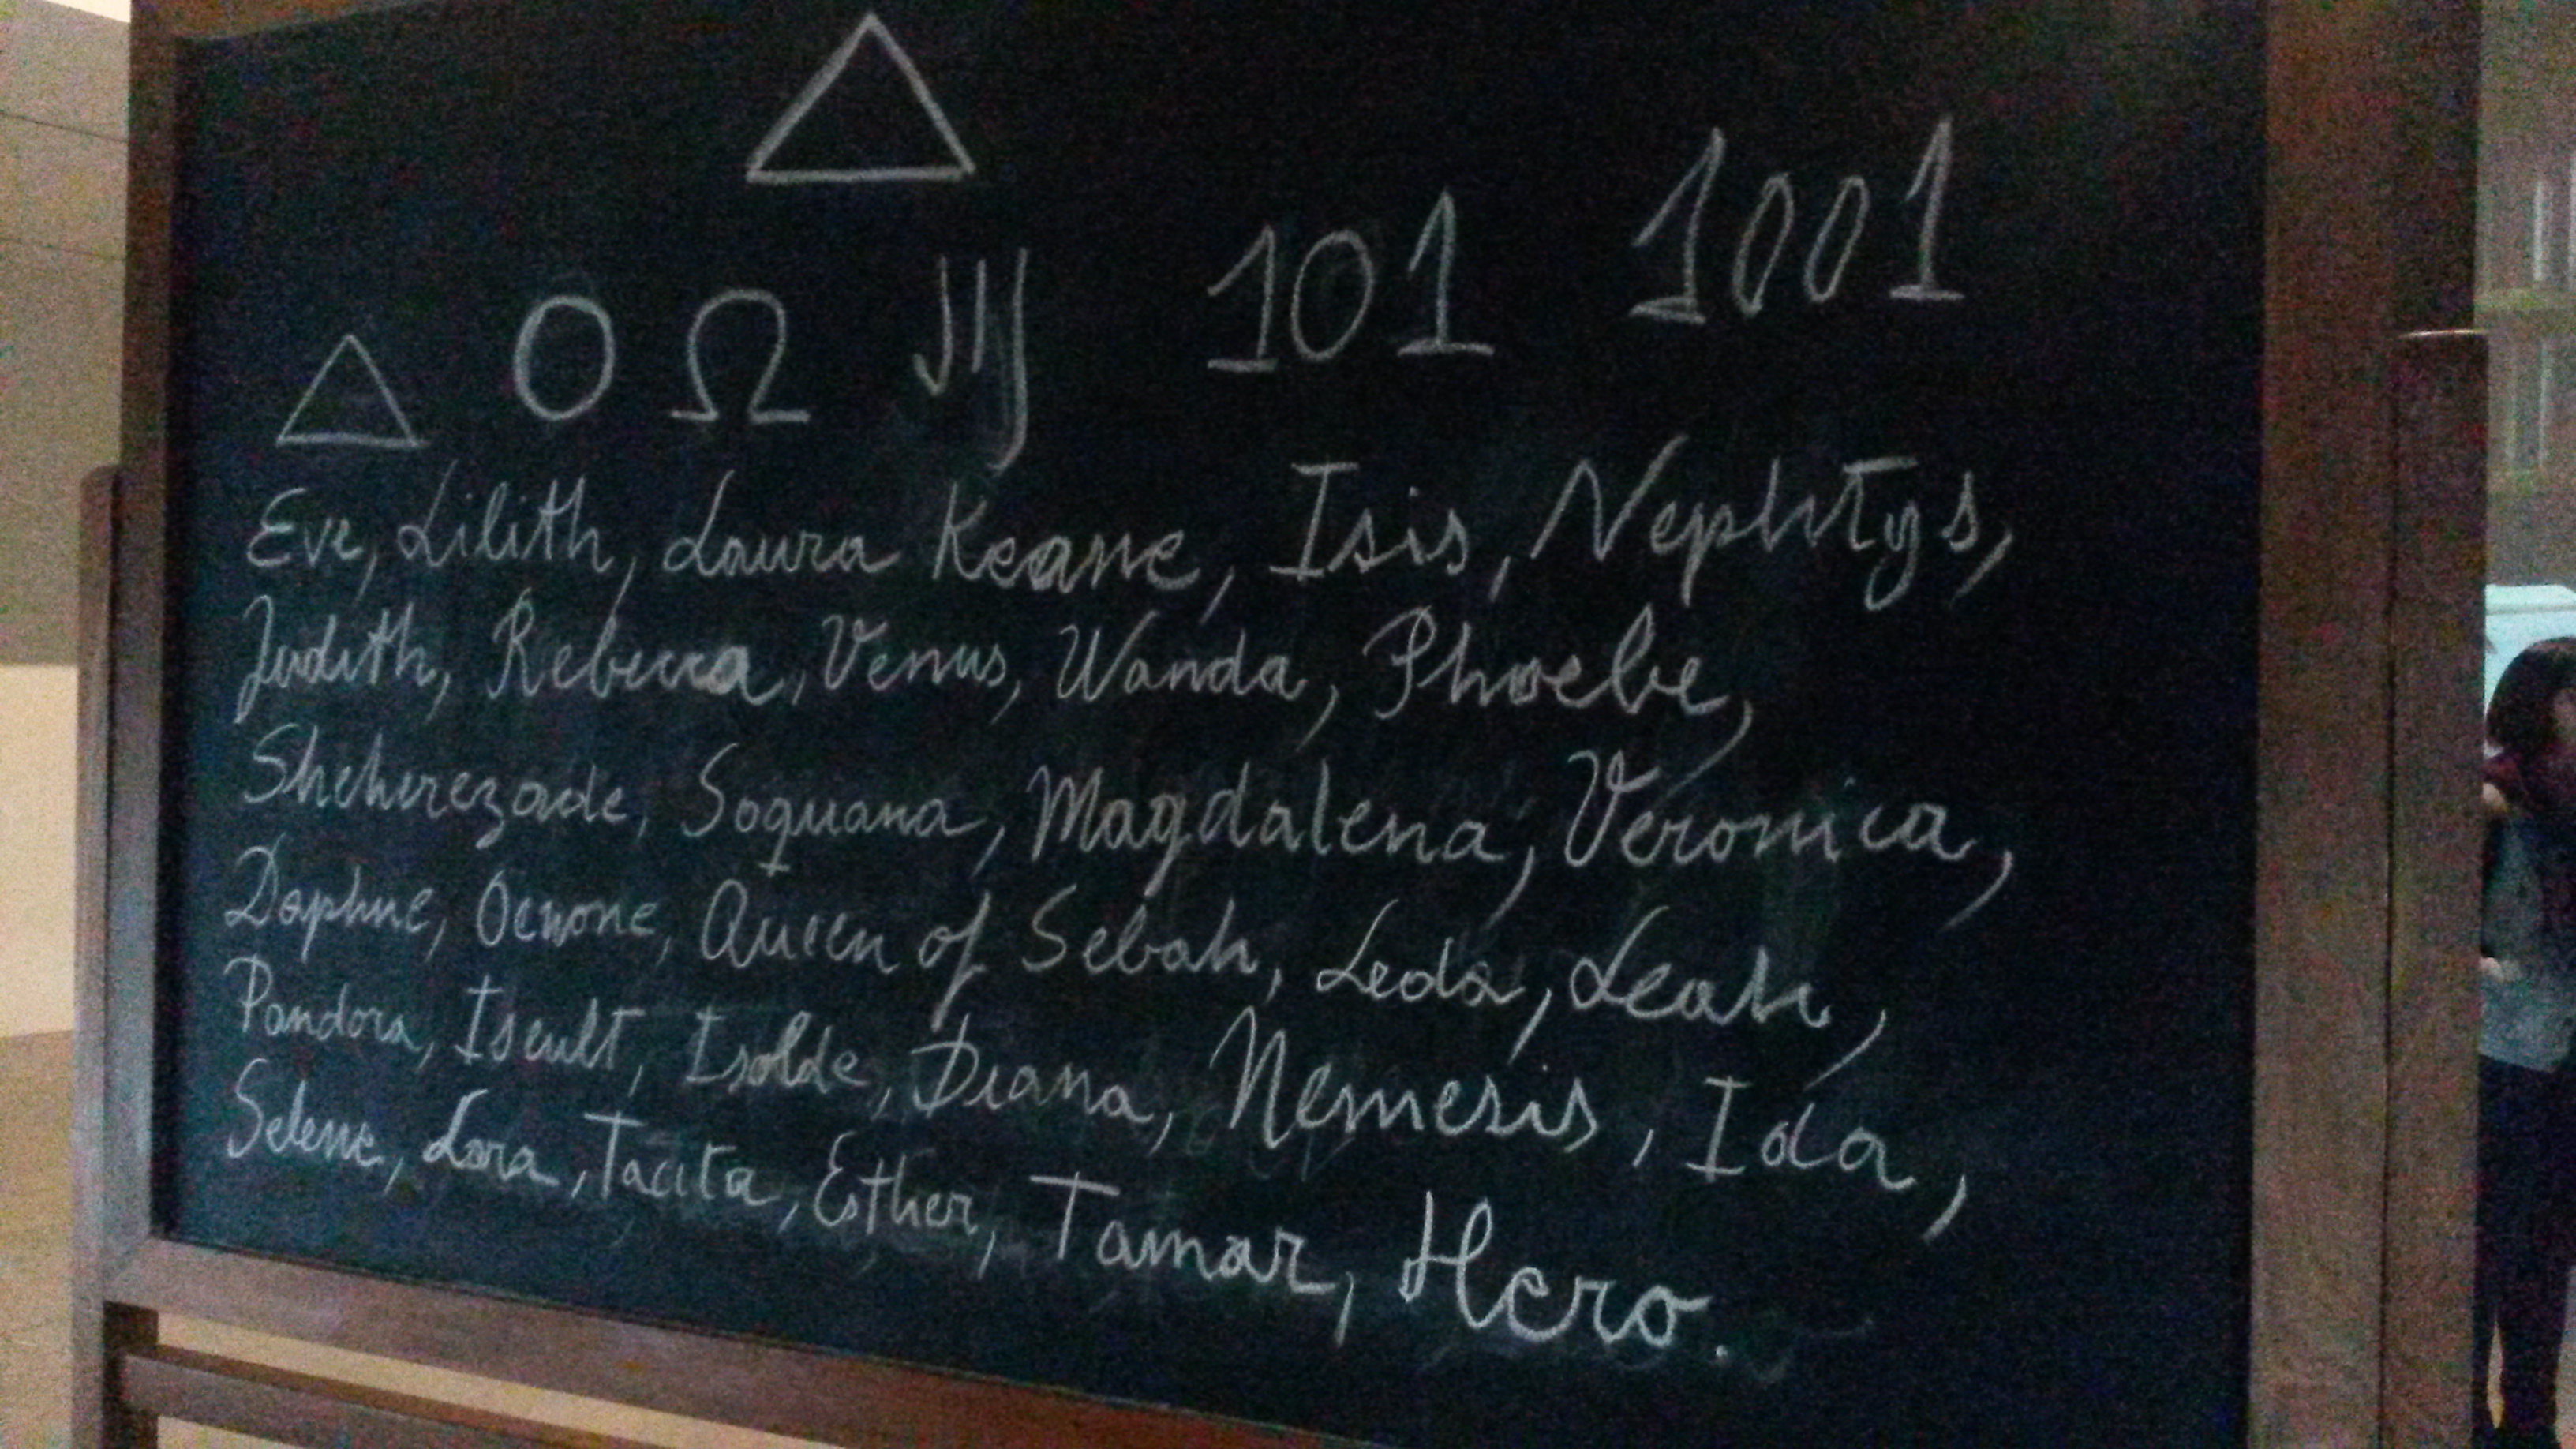 △
△ O Ω 101 1001
Eve, Lilith, Laura Keane, Isis, Nephtys,
Judith, Rebecca, Venus, Wanda, Phoebe,
Sheherezade, Soquana, Magdalena, Veronica,
Daphne, Oenone, Queen of Sebah, Leda, Leah,
Pandora, Iseult, Isolde, Diana, Nemesis, Ida,
Selene, Lora, Tacita, Esther, Tamar, Hero.